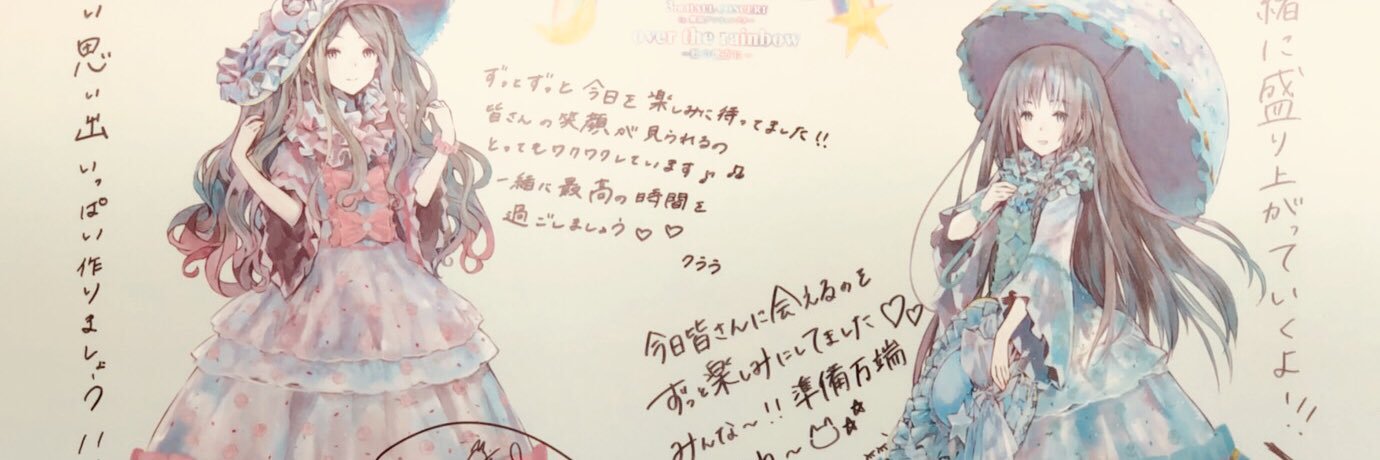 3rd HALL CONCERT
over the rainbow
い思い出いっぱい作りましょう!!
ずっとずっと今日を楽しみに待ってました!!
皆さんの笑顔が見られるの
とってもワクワクしています♪♫
一緒に最高の時間を
過ごしましょう♡♡
クララ
今日皆さんに会えるのを
ずっと楽しみにしてました♡♡
みんな〜!!準備万端
緒に盛り上がっていくよ!!!